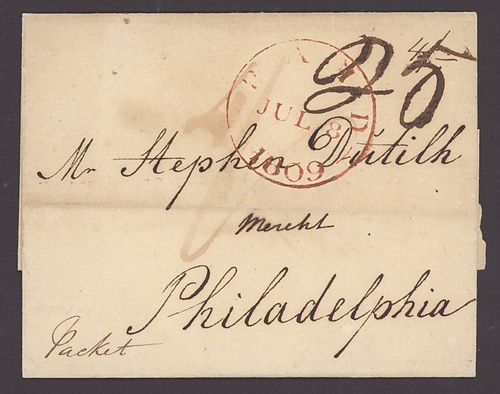 4/-
25
PAID
JUL 8
1809
Mr Stephen Dutilh
Mercht
Philadelphia
Packet